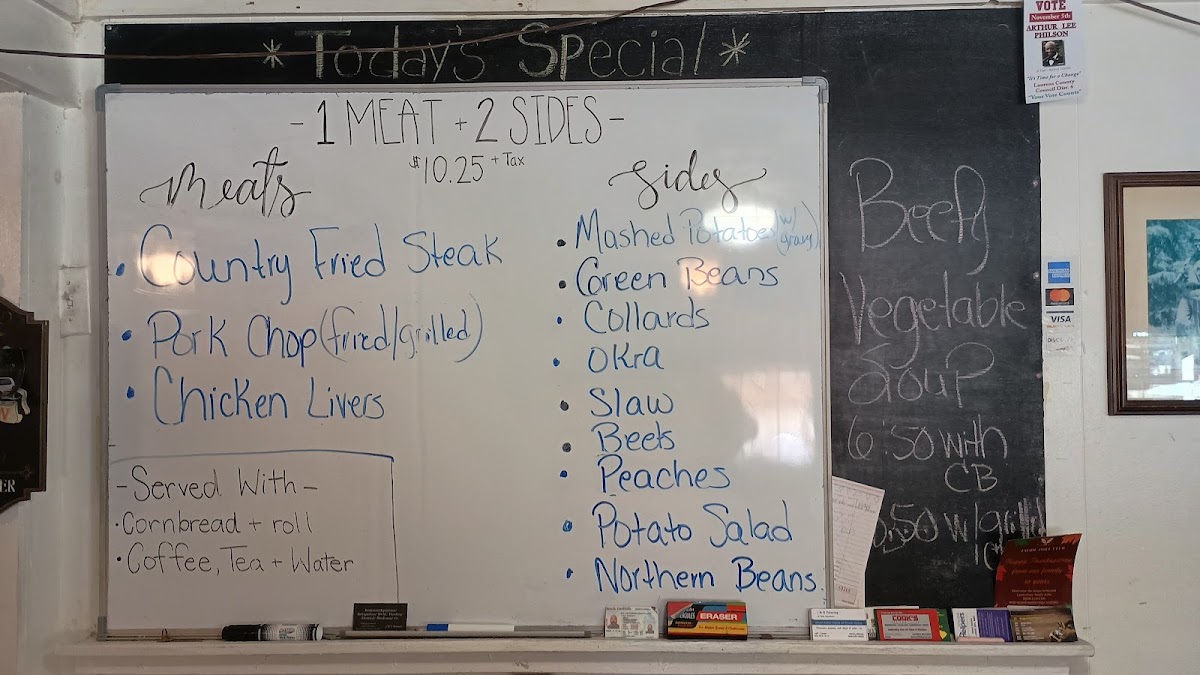 *Today's Special*
-1 MEAT + 2 SIDES-
$10.25 + Tax
Meats
• Country Fried Steak
• Pork Chop (fried/grilled)
• Chicken Livers
-Served With-
• Cornbread + roll
• Coffee, Tea + Water
Sides
• Mashed Potatoes (w/ gravy)
• Green Beans
• Collards
• Okra
• Slaw
• Beets
• Peaches
• Potato Salad
• Northern Beans
Beefy
Vegetable
Soup
6.50 with
CB
VOTE
November 5th
ARTHUR LEE
PHILSON
"It's Time for a Change"
Laurens County
Council Dist. 6
"Your Vote Counts"
VISA
ERASER
COOK'S